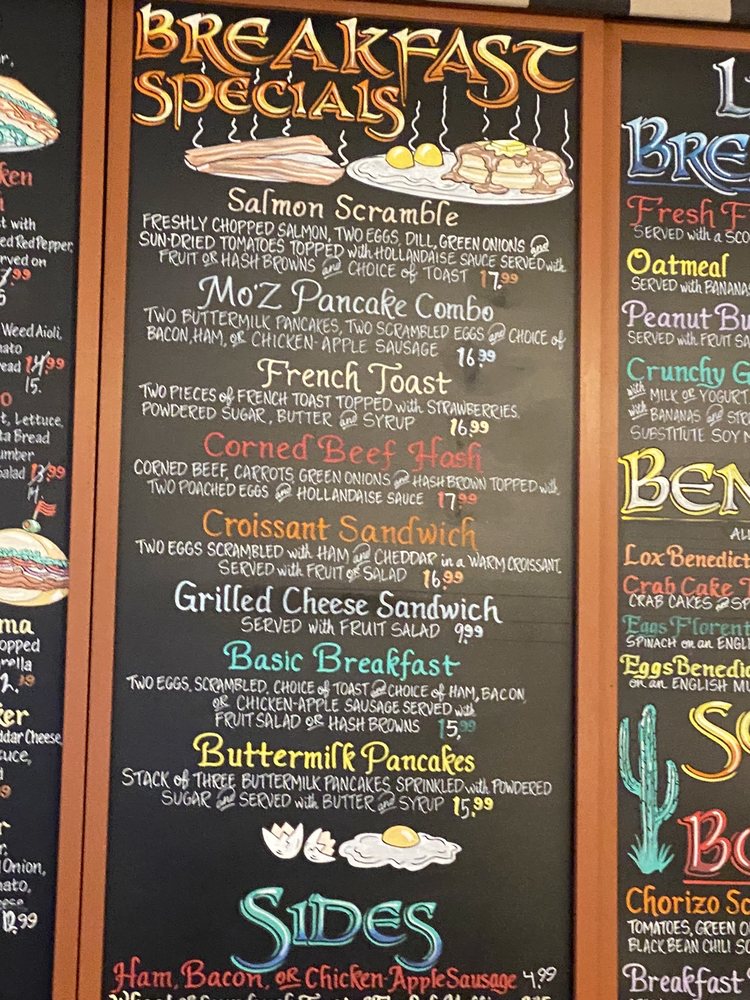 BREAKFAST
SPECIALS
Salmon Scramble
FRESHLY CHOPPED SALMON, TWO EGGS, DILL, GREEN ONIONS and
SUN-DRIED TOMATOES TOPPED with HOLLANDAISE SAUCE SERVED with
FRUIT OR HASH BROWNS and CHOICE of TOAST 17.99
Mo'Z Pancake Combo
TWO BUTTERMILK PANCAKES, TWO SCRAMBLED EGGS and CHOICE of
BACON, HAM, OR CHICKEN-APPLE SAUSAGE 16.99
French Toast
TWO PIECES of FRENCH TOAST TOPPED with STRAWBERRIES
POWDERED SUGAR, BUTTER and SYRUP 16.99
Corned Beef Hash
CORNED BEEF, CARROTS, GREEN ONIONS and HASH BROWN TOPPED with
TWO POACHED EGGS and HOLLANDAISE SAUCE 17.99
Croissant Sandwich
TWO EGGS SCRAMBLED with HAM and CHEDDAR in a WARM CROISSANT.
SERVED with FRUIT OR SALAD 16.99
Grilled Cheese Sandwich
SERVED with FRUIT SALAD 9.99
Basic Breakfast
TWO EGGS, SCRAMBLED, CHOICE of TOAST and CHOICE of HAM, BACON
OR CHICKEN-APPLE SAUSAGE SERVED with
FRUIT SALAD OR HASH BROWNS 15.99
Buttermilk Pancakes
STACK of THREE BUTTERMILK PANCAKES, SPRINKLED with POWDERED
SUGAR and SERVED with BUTTER and SYRUP 15.99
SIDES
Ham, Bacon, OR Chicken-Apple Sausage 4.99
ken
t with
ed Red Pepper,
rved on
Weed Aioli,
ato
ead 14.99
15.
t, Lettuce,
ta Bread
umber
Salad 13.99
ma
opped
rella
ker
ddar Cheese,
uce,
Onion,
nato,
12.99
L
BRE
Fresh F
SERVED with a SCO
Oatmeal
SERVED with BANANAS
Peanut Bu
SERVED with FRUIT SA
Crunchy G
with MILK OR YOGURT
with BANANAS and STR
SUBSTITUTE SOY M
BEN
AL
Lox Benedict
Crab Cake
CRAB CAKES and SP
Eggs Florent
SPINACH on an ENGLI
Eggs Benedic
on an ENGLISH MU
SO
BO
Chorizo Sc
TOMATOES, GREEN O
BLACK BEAN CHILI SO
Breakfast